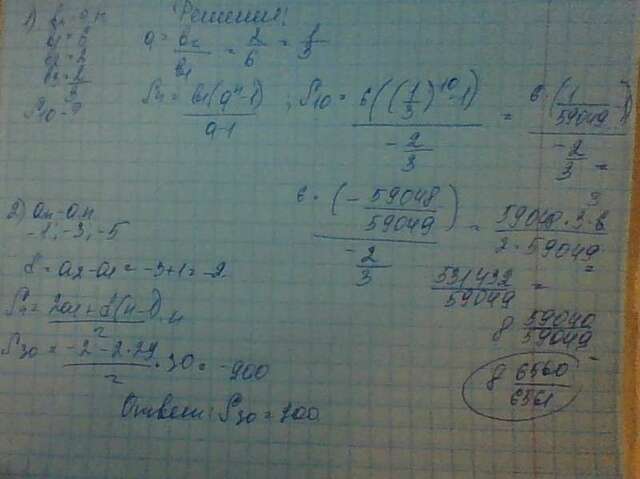 1) bn - г.п. Решение:
b1 = 6
b2 = 2
b3 = 2/3
S10 - ?
q = b2/b1 = 2/6 = 1/3
Sn = b1(q^n - 1)/q - 1 ; S10 = 6((1/3)^10 - 1)/-2/3 = 6·(1/59049 - 1)/-2/3 =
6·(-59048/59049)/-2/3 = 59048·3·6/2·59049 =
531432/59049 =
8 59040/59049 =
8 6560/6561
2) an - а.п.
-1; -3; -5
d = a2 - a1 = -3 + 1 = -2
Sn = 2a1 + d(n-1)/2 · n
S30 = -2 - 2·29/2 · 30 = -900
Ответ: S30 = 900